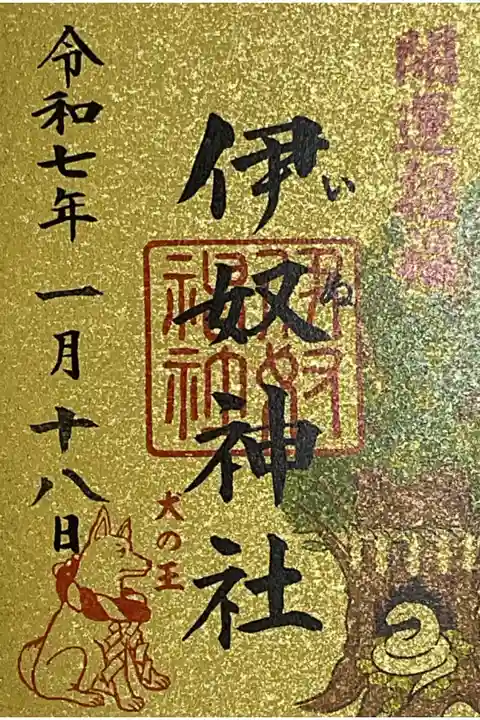 開運招福
伊奴神社
いぬ
伊奴神社
犬の王
令和七年 一月十八日